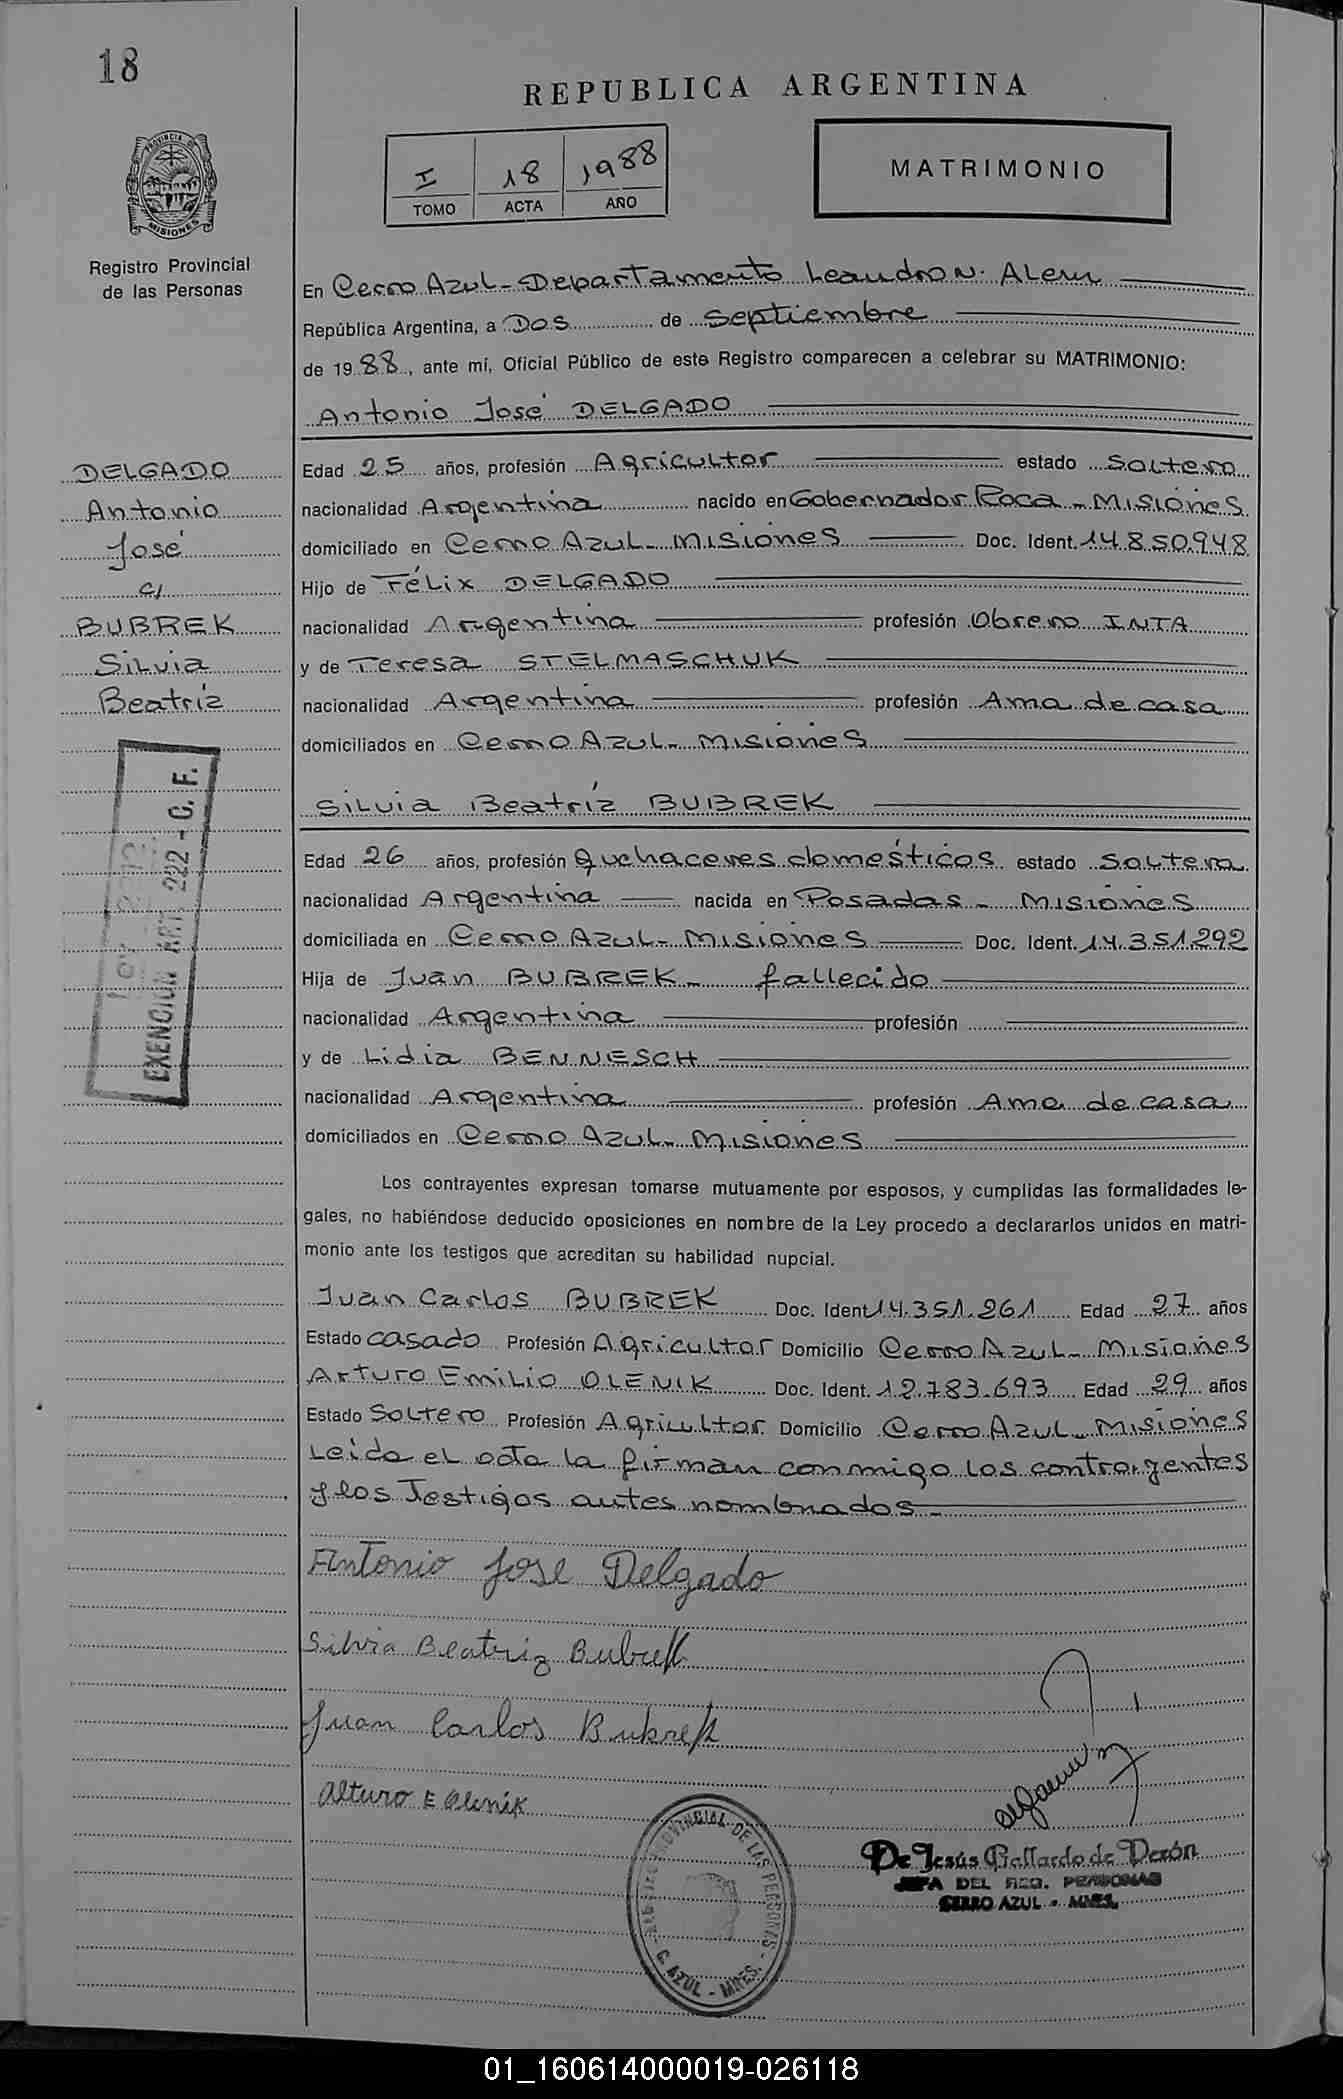 18
REPUBLICA ARGENTINA
PROVINCIA DE
MISIONES
Registro Provincial
de las Personas
I 18 1988
TOMO ACTA AÑO
MATRIMONIO
En Cerro Azul - Departamento Leandro N. Alem
República Argentina, a Dos de Septiembre
de 1988, ante mí, Oficial Público de este Registro comparecen a celebrar su MATRIMONIO:
Antonio José DELGADO
DELGADO
Antonio
José
c/
BUBREK
Silvia
Beatríz
EXENCION ART. 222 - C. F.
Edad 25 años, profesión Agricultor estado Soltero
nacionalidad Argentina nacido en Gobernador Roca - Misiones
domiciliado en Cerro Azul - Misiones Doc. Ident. 14.850.948
Hijo de Félix DELGADO
nacionalidad Argentina profesión Obrero INTA
y de Teresa STELMASCHUK
nacionalidad Argentina profesión Ama de casa
domiciliados en Cerro Azul - Misiones
Silvia Beatríz BUBREK
Edad 26 años, profesión Quehaceres domésticos estado Soltera
nacionalidad Argentina nacida en Posadas - Misiones
domiciliada en Cerro Azul - Misiones Doc. Ident. 14.351.292
Hija de Juan BUBREK - fallecido
nacionalidad Argentina profesión
y de Lidia BENNESCH
nacionalidad Argentina profesión Ama de casa
domiciliados en Cerro Azul - Misiones
Los contrayentes expresan tomarse mutuamente por esposos, y cumplidas las formalidades le-
gales, no habiéndose deducido oposiciones en nombre de la Ley procedo a declararlos unidos en matri-
monio ante los testigos que acreditan su habilidad nupcial.
Juan Carlos BUBREK Doc. Ident 14.351.261 Edad 27 años
Estado casado Profesión Agricultor Domicilio Cerro Azul - Misiones
Arturo Emilio OLENIK Doc. Ident. 12.783.693 Edad 29 años
Estado Soltero Profesión Agricultor Domicilio Cerro Azul - Misiones
Leída el acta la firman conmigo los contrayentes
y los Testigos antes nombrados -
Antonio Jose Delgado
Silvia Beatriz Bubrek
Juan Carlos Bubrek
Arturo E Olenik
REGISTRO PROVINCIAL DE LAS PERSONAS
- C. AZUL - MNES. -
De Jesús Gallardo de Perón
JEFA DEL REG. PERSONAS
CERRO AZUL - MNES.
01_160614000019-026118